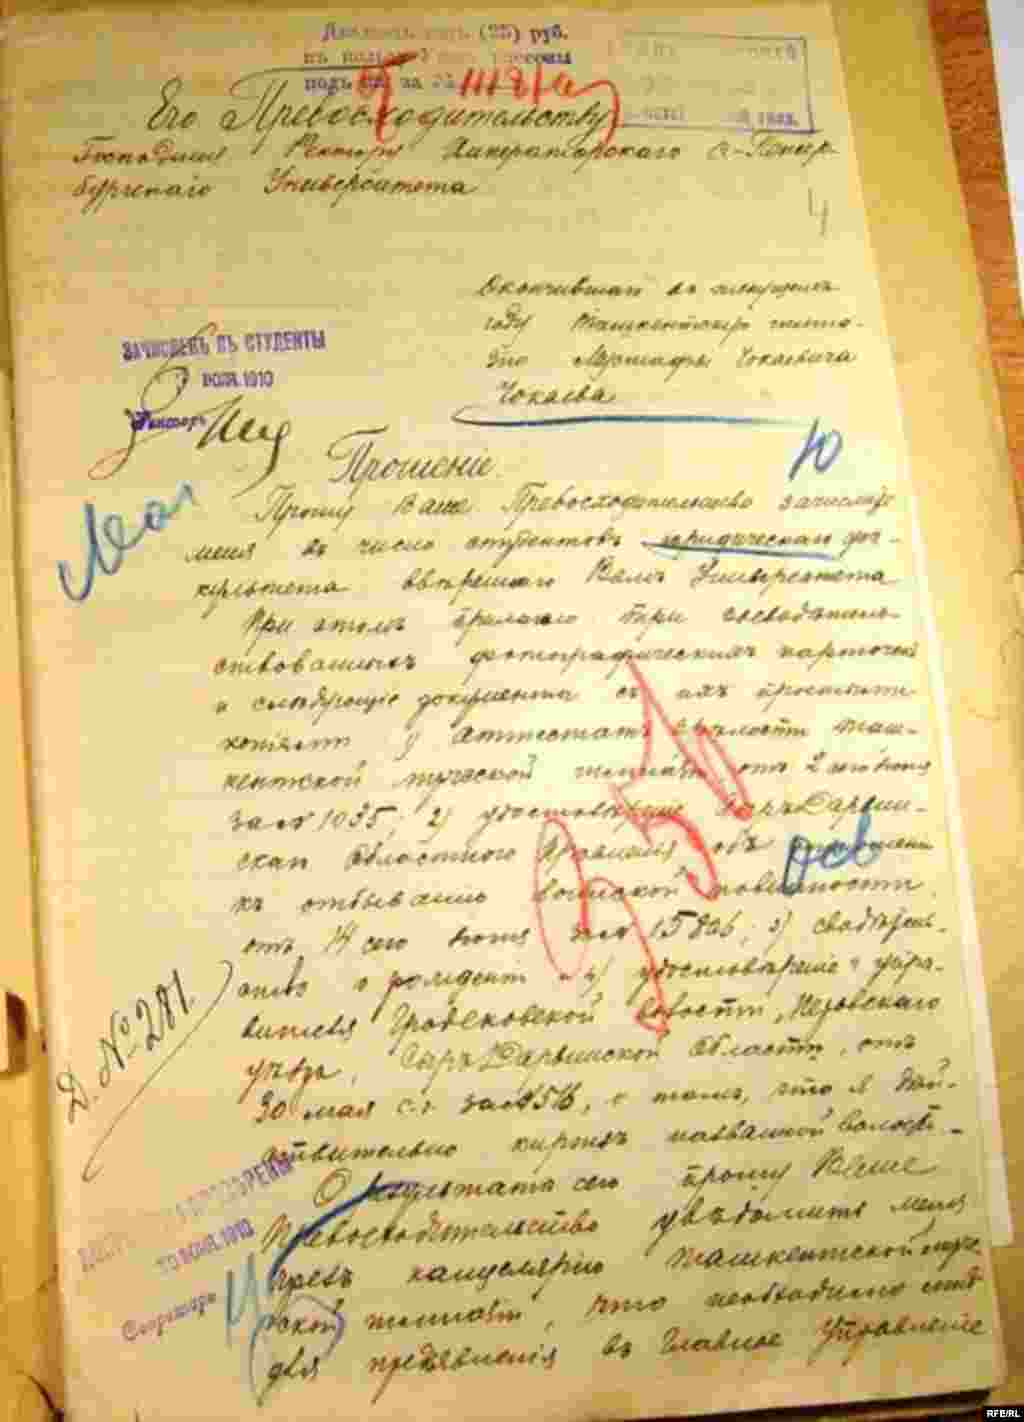 Двадцать пять (25) руб.
въ пользу
подъ за
Его Превосходительству
Господину Ректору Императорскаго С-Петер-
бургскаго Университета
4
Окончившаго въ текущемъ
году Ташкентскую гимна-
зію Мустафы Чокаевича
Чокаева
ЗАЧИСЛЕНЪ ВЪ СТУДЕНТЫ
ІЮЛЯ 1910
Ректоръ
Прошеніе.
10
Прошу Ваше Превосходительство зачислить
меня въ число студентовъ юридическаго фа-
культета ввѣреннаго Вамъ Университета
При этомъ прилагаю три засвидѣтель-
ствованныхъ фотографическихъ карточки
и слѣдующіе документы съ ихъ
копіями: 1) Аттестатъ зрѣлости Таш-
кентской мужской гимназіи отъ 2 сего іюня
за № 1035; 2) удостовѣреніе Сыръ-Дарьин-
скаго Областного Правленія объ отношеніи
къ отбыванію воинской повинности
отъ 14 сего іюня за № 15806; 3) свидѣтель-
ство о рожденіи и 4) удостовѣреніе управ-
вителя Гродековской волости, Перовскаго
уѣзда, Сыръ-Дарьинской Области, отъ
30 мая с.г. за № 456, о томъ, что я дѣй-
ствительно киргизъ названной волости.
Д. № 281.
О результатѣ сего прошу Ваше
Превосходительство увѣдомить меня
чрезъ канцелярію Ташкентской муж-
ской гимназіи, что необходимо мнѣ
для предъявленія въ Главное Управленіе
10 ІЮЛЯ 1910
Секретарь
RFE/RL